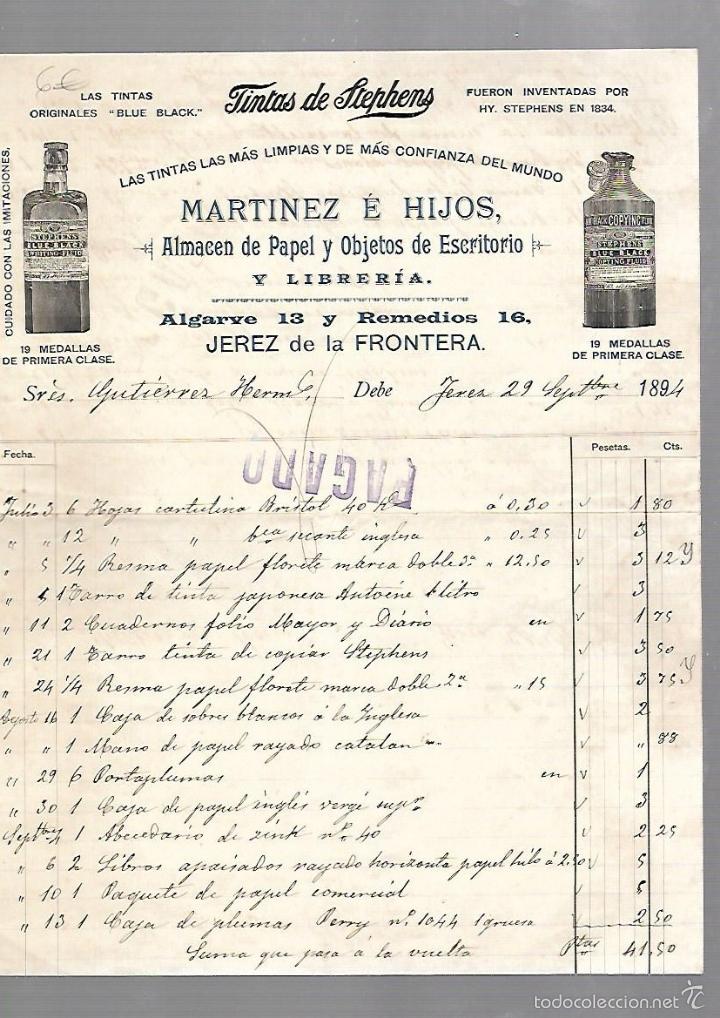 LAS TINTAS
ORIGINALES "BLUE BLACK."
Tintas de Stephens
FUERON INVENTADAS POR
HY. STEPHENS EN 1834.
LAS TINTAS LAS MÁS LIMPIAS Y DE MÁS CONFIANZA DEL MUNDO
CUIDADO CON LAS IMITACIONES.
STEPHENS'
BLUE BLACK
WRITING FLUID
19 MEDALLAS
DE PRIMERA CLASE.
MARTINEZ É HIJOS,
Almacen de Papel y Objetos de Escritorio
Y LIBRERÍA.
Algarve 13 y Remedios 16,
JEREZ de la FRONTERA.
COPYING
STEPHENS
BLUE BLACK
COPYING FLUID
19 MEDALLAS
DE PRIMERA CLASE.
Sres. Gutiérrez Hermos. Debe Jerez 29 Septbre 1894
Fecha. Pesetas. Cts.
PAGADO
Julio 3 6 Hojas cartulina Bristol 40 á 0,30 1 80
" " 12 " " secante inglesa " 0.25 3
" 5 1/4 Resma papel florete marca doble " 12.50 3 12
" 1 Tarro de tinta japonesa Antoine litro 3
" 11 2 Cuadernos folio Mayor y Diario en 1 75
" 21 1 Tarro tinta de copiar Stephens 3 50
" 24 1/4 Resma papel florete marca doble 2ª " 15 3 75
Agosto 16 1 Caja de sobres blancos á la Inglesa 2
" " 1 Mano de papel rayado catalan " 88
" 29 6 Portaplumas en 1
" 30 1 Caja de papel inglés vergé supr 3
Septbre 4 1 Abecedario de zink nº 40 2 25
" 6 2 Libros apaisados rayado horizontal papel hilo á 2.50 5
" 10 1 Paquete de papel comercial 5
" 13 1 Caja de plumas Perry nº 1044 1 gruesa 2 50
Suma que pasa á la vuelta Ptas 41.50
todocoleccion.net